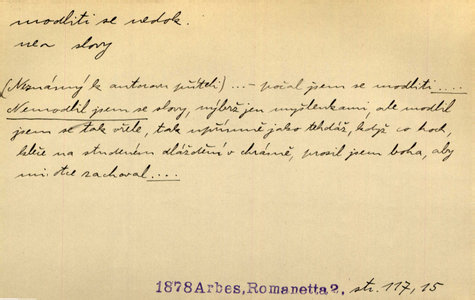 modliti se nedok.
ne a slovy
(Neznámý k autorovu příteli) ... – počal jsem se modliti ....
Nemodlil jsem se slovy, nýbrž jen myšlenkami, ale modlil
jsem se tak vřele, tak upřímně jako tehdáž, když co hoch,
kleče na studeném dláždění v chrámě, prosil jsem boha, aby
mi otce zachoval ....
1878 Arbes, Romanetta 2, str. 117, 15